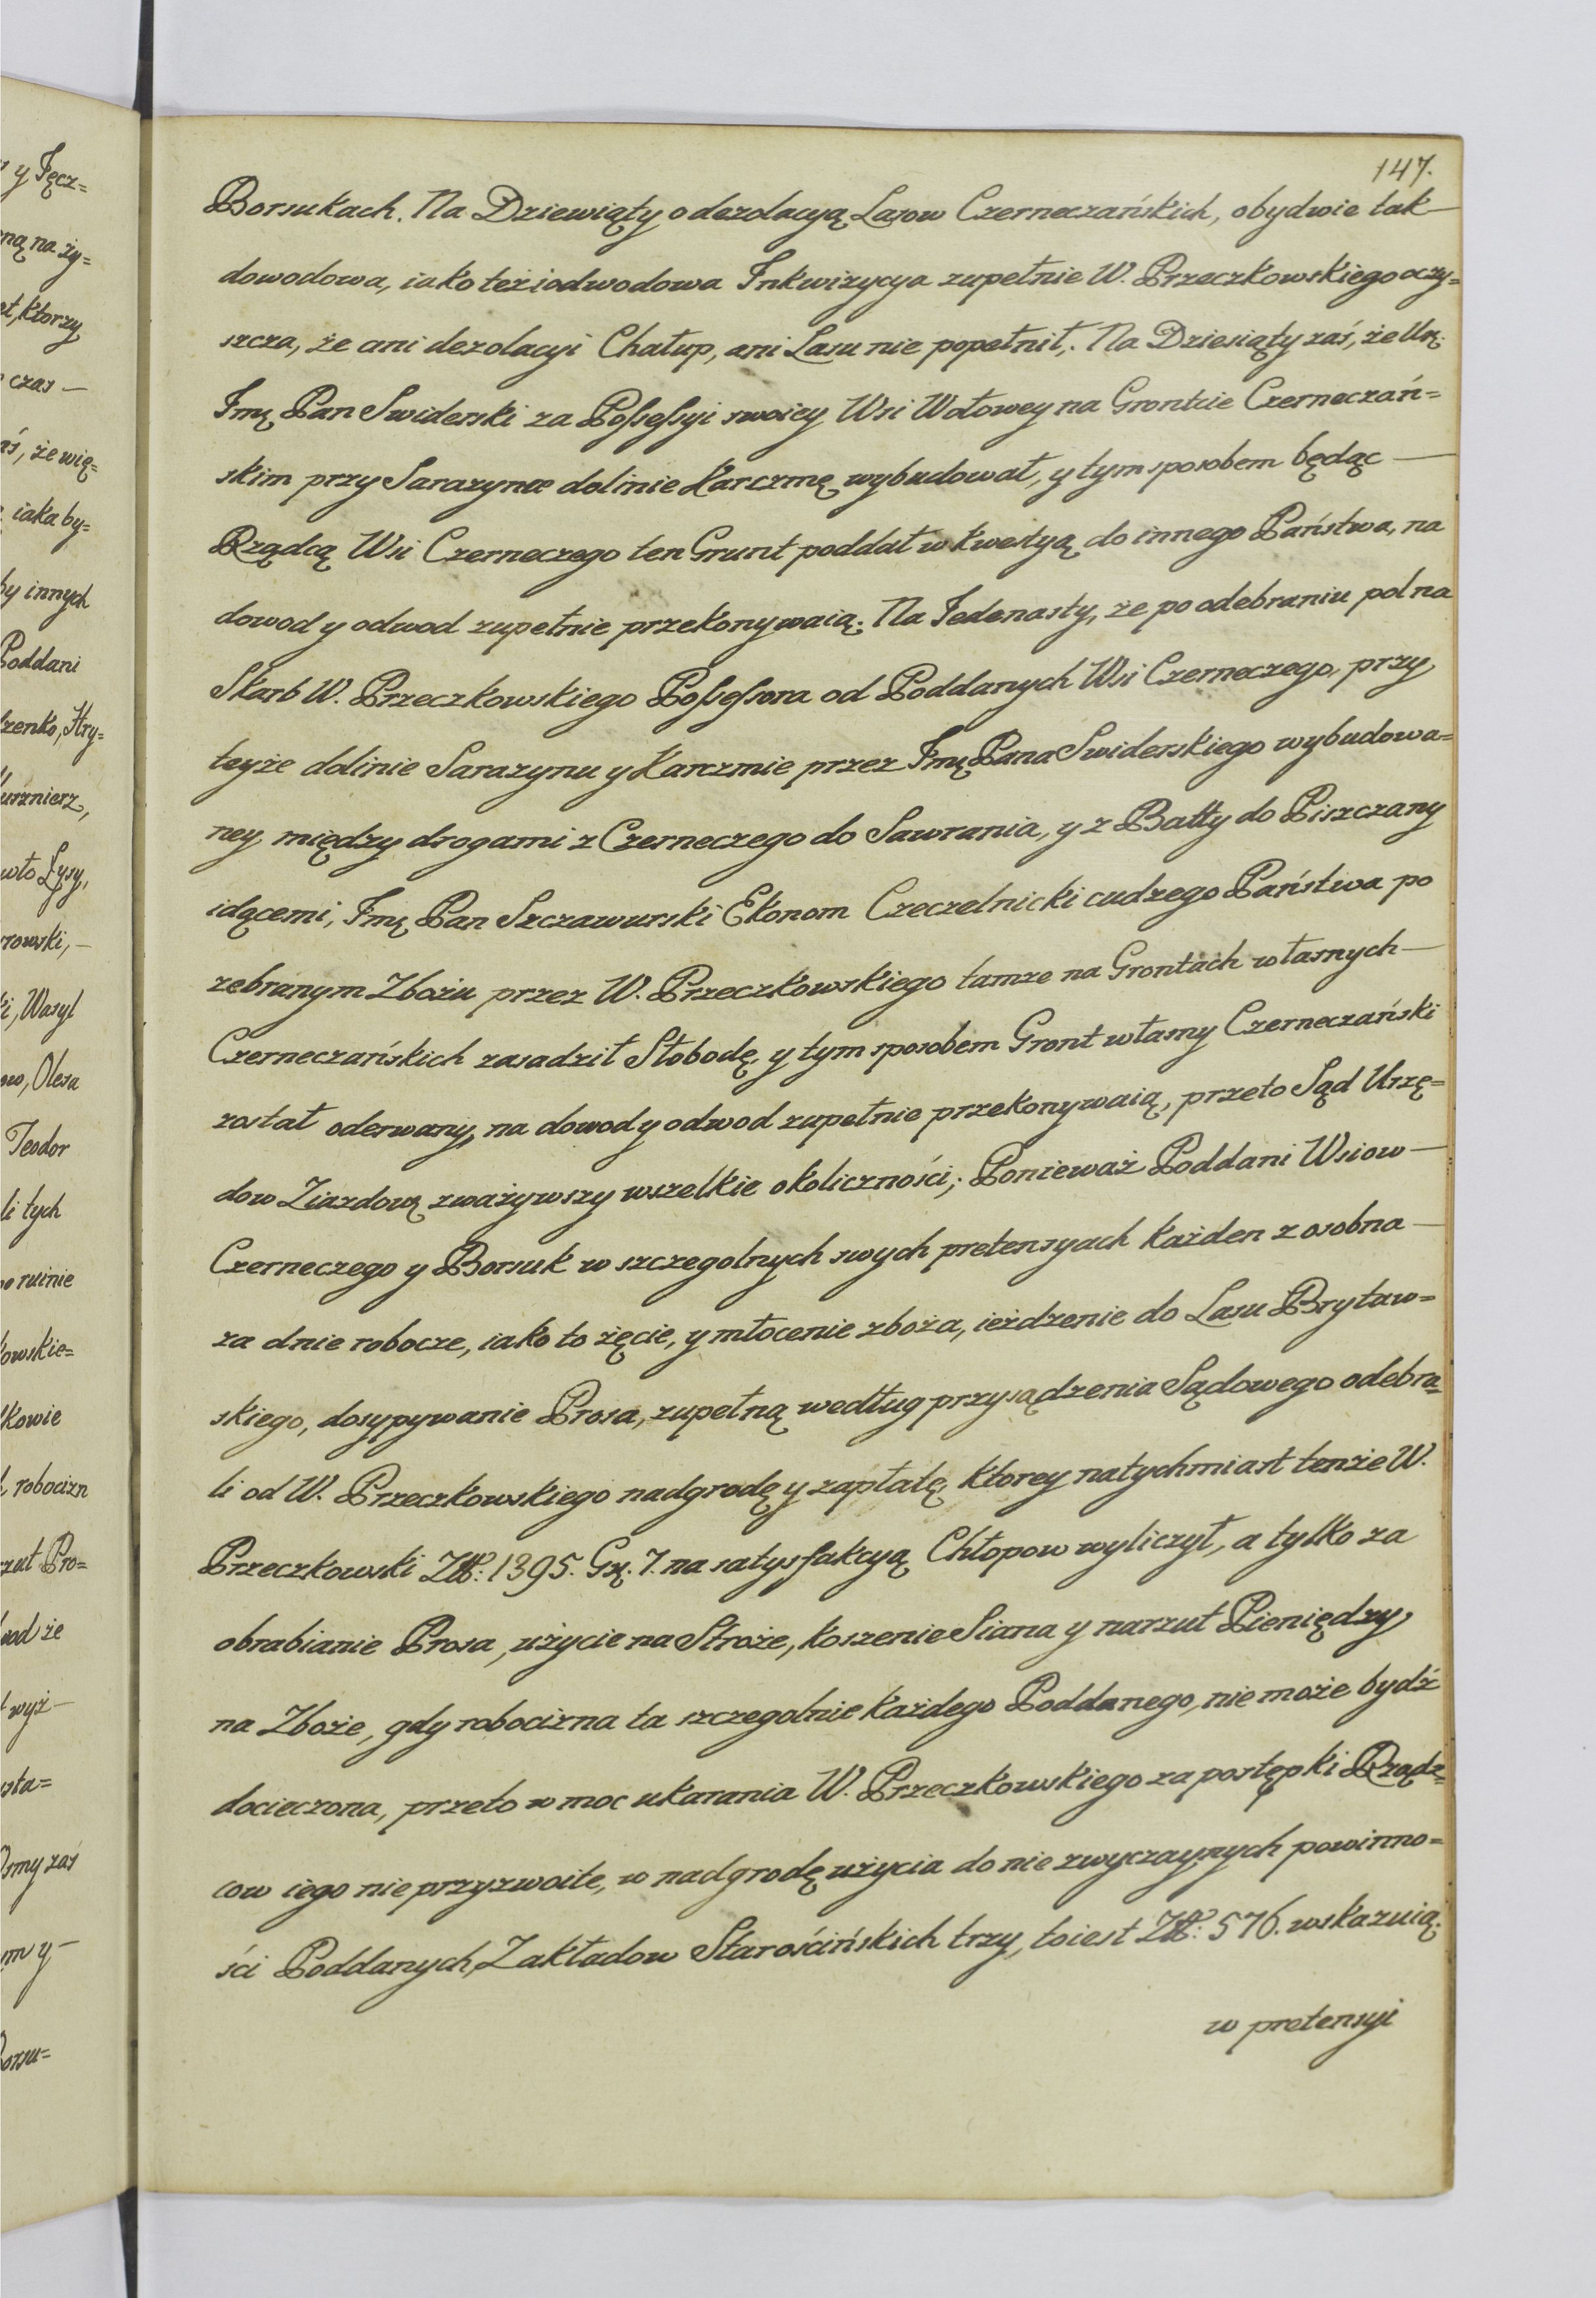 147.
Borsukach. Na Dziewiąty o dezolacyą Lasow Czerneczańskich, obydwie tak —
dowodowa, iako też i odwodowa Inkwizycya zupełnie W. Przeczkowskiego oczy=
szcza, że ani dezolacyi Chałup, ani Lasu nie popełnił,. Na Dziesiąty zaś, że
Imę Pan Swiderski za Possessyi swoiey Wsi Wołowey na Grontcie Czerneczań=
skim przy Sarazynce dolinie Karczmę wybudował, y tym sposobem będąc —
Rządcą Wsi Czerneczego ten Grunt poddał w kwestyą do innego Państwa, na
dowod y odwod zupełnie przekonywaią. Na Iedenasty, że po odebraniu pol na
Skarb W. Przeczkowskiego Possessora od Poddanych Wsi Czerneczego, przy
teyże dolinie Sarazynu y Karczmie przez Imę Pana Swiderskiego wybudowa=
ney, między drogami z Czerneczego do Sawrania, y z Bałty do Piszczany
idącemi, Imę Pan Szczawurski Ekonom Czeczelnicki cudzego Państwa po
zebranym Zbożu przez W. Przeczkowskiego tamze na Grontach własnych —
Czerneczańskich zasadził Słobodę, y tym sposobem Gront własny Czerneczański
został oderwany, na dowod y odwod zupełnie przekonywaią, przeto Sąd Urzę=
dow Ziazdowę zważywszy wszelkie okoliczności; Ponieważ Poddani Wsiow —
Czerneczego y Borsuk w szczegolnych swych pretensyach każden z osobna —
za dnie robocze, iako to żęcie, y młocenie zboża, ieżdzenie do Lasu Brytaw=
skiego, dosypywanie Prosa, zupełną według przysądzenia Sądowego odebra=
li od W. Przeczkowskiego nadgrodę y zapłatę, ktorey natychmiast tenże W.
Przeczkowski Zł: 1395. Gr. 7. na satysfakcyą Chłopow wyliczył, a tylko za
obrabianie Prosa, użycie na Stroże, koszenie Siana y narzut Pieniędzy
na Zboże, gdy robocizna ta szczegolnie każdego Poddanego, nie może bydź
docieczona, przeto w moc ukarania W. Przeczkowskiego za postępki Rządz=
cow iego nieprzyzwoite, w nadgrodę użycia do nie zwyczaynych powinno=
ści Poddanych, Zakładow Starościńskich trzy, to iest Zł: 576. wskazuią.
w pretensyi
y Ięcz=
ną na ży=
ktorzy
czas —
że wię=
iaka by=
by innych
Poddani
Hry=
Łysy,
Wasyl
Olexa
Teodor
li tych
ruinie
robocizn
Pro=
że
wyż —
zaś
y —